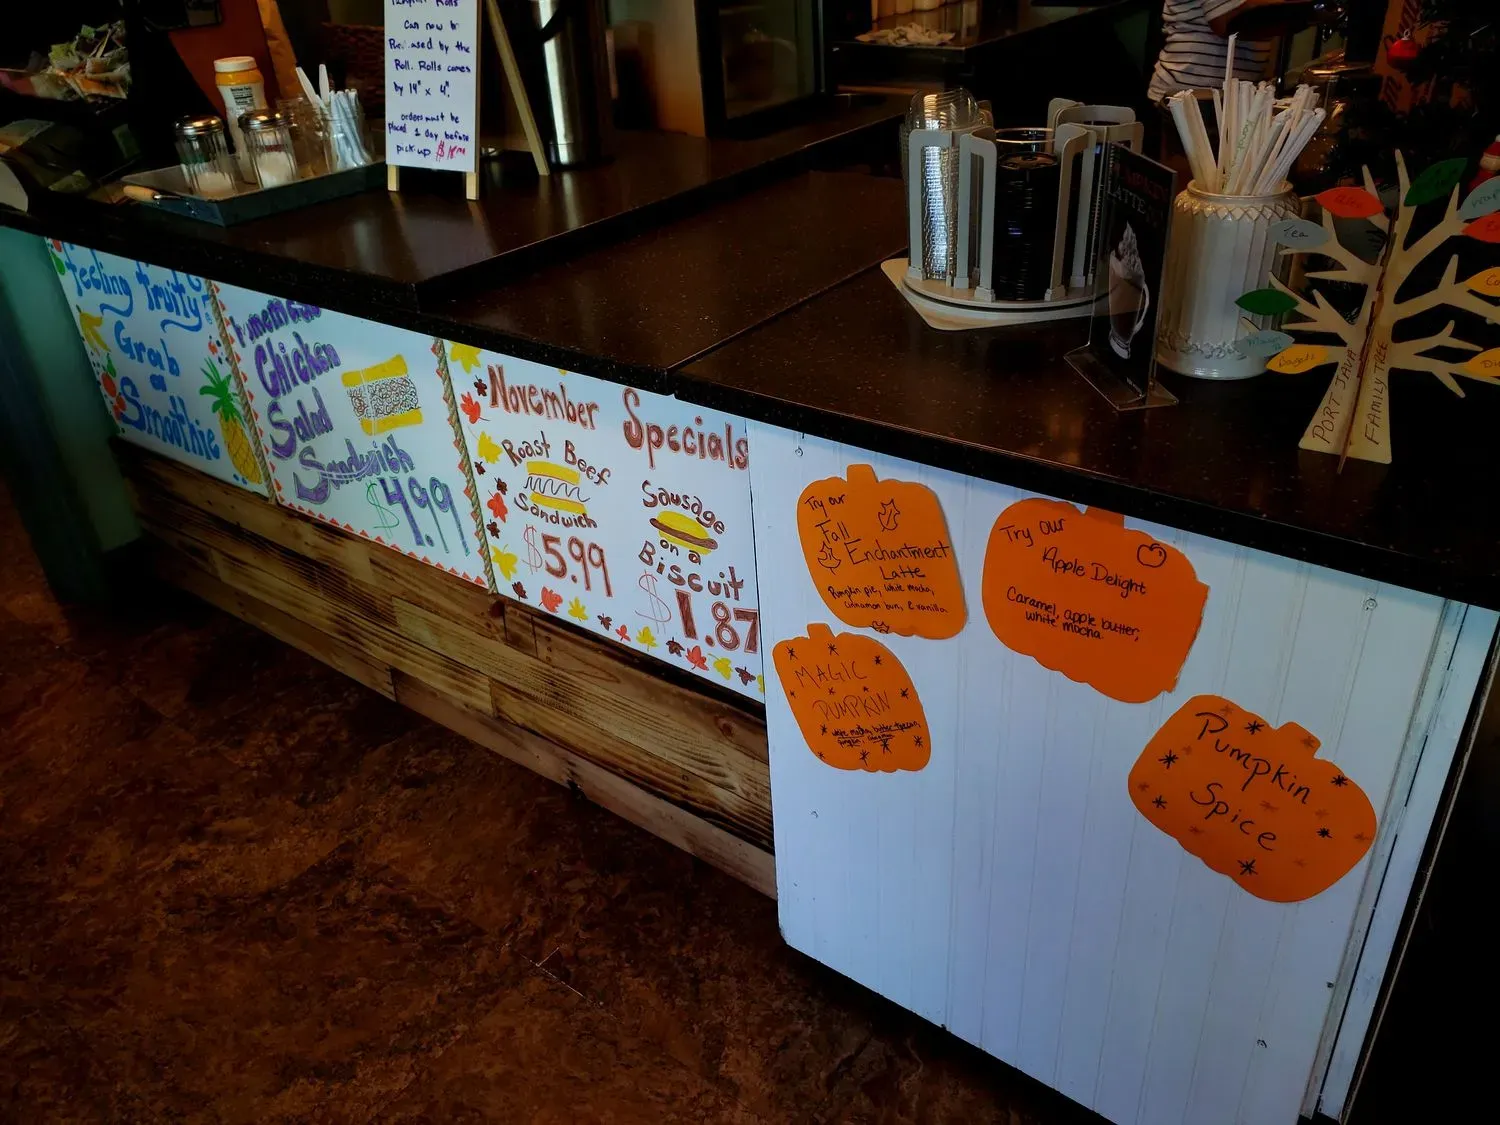 Rolls
Can now be
by the
Roll. Rolls comes
by 14" x 4".
orders must be
placed 1 day before
pick-up
feeling fruity?
Grab
a
Smoothie
Homemade
Chicken
Salad
Sandwich
$4.99
November Specials
Roast Beef
Sandwich
$5.99
Sausage
on a
Biscuit
$1.87
Try our
Fall
Enchantment
Latte
Pumpkin pie, white mocha,
cinnamon bun, & vanilla
Try our
Apple Delight
Caramel, apple butter,
white mocha.
MAGIC
PUMPKIN
white mocha, butter pecan,
Pumpkin Spice
LATTE
Tea
Bagels
PORT JAVA
FAMILY TREE